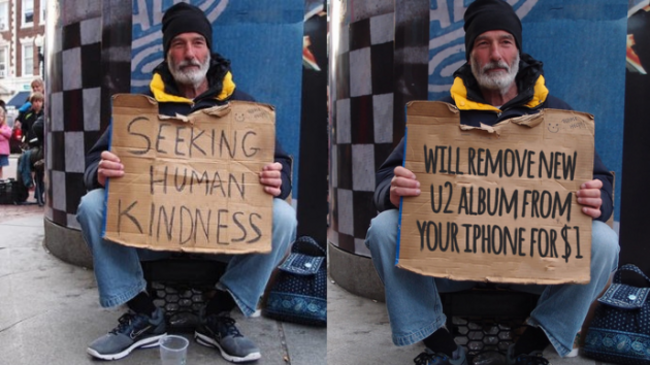 SEEKING
HUMAN
KINDNESS
WILL REMOVE NEW
U2 ALBUM FROM
YOUR IPHONE FOR $1